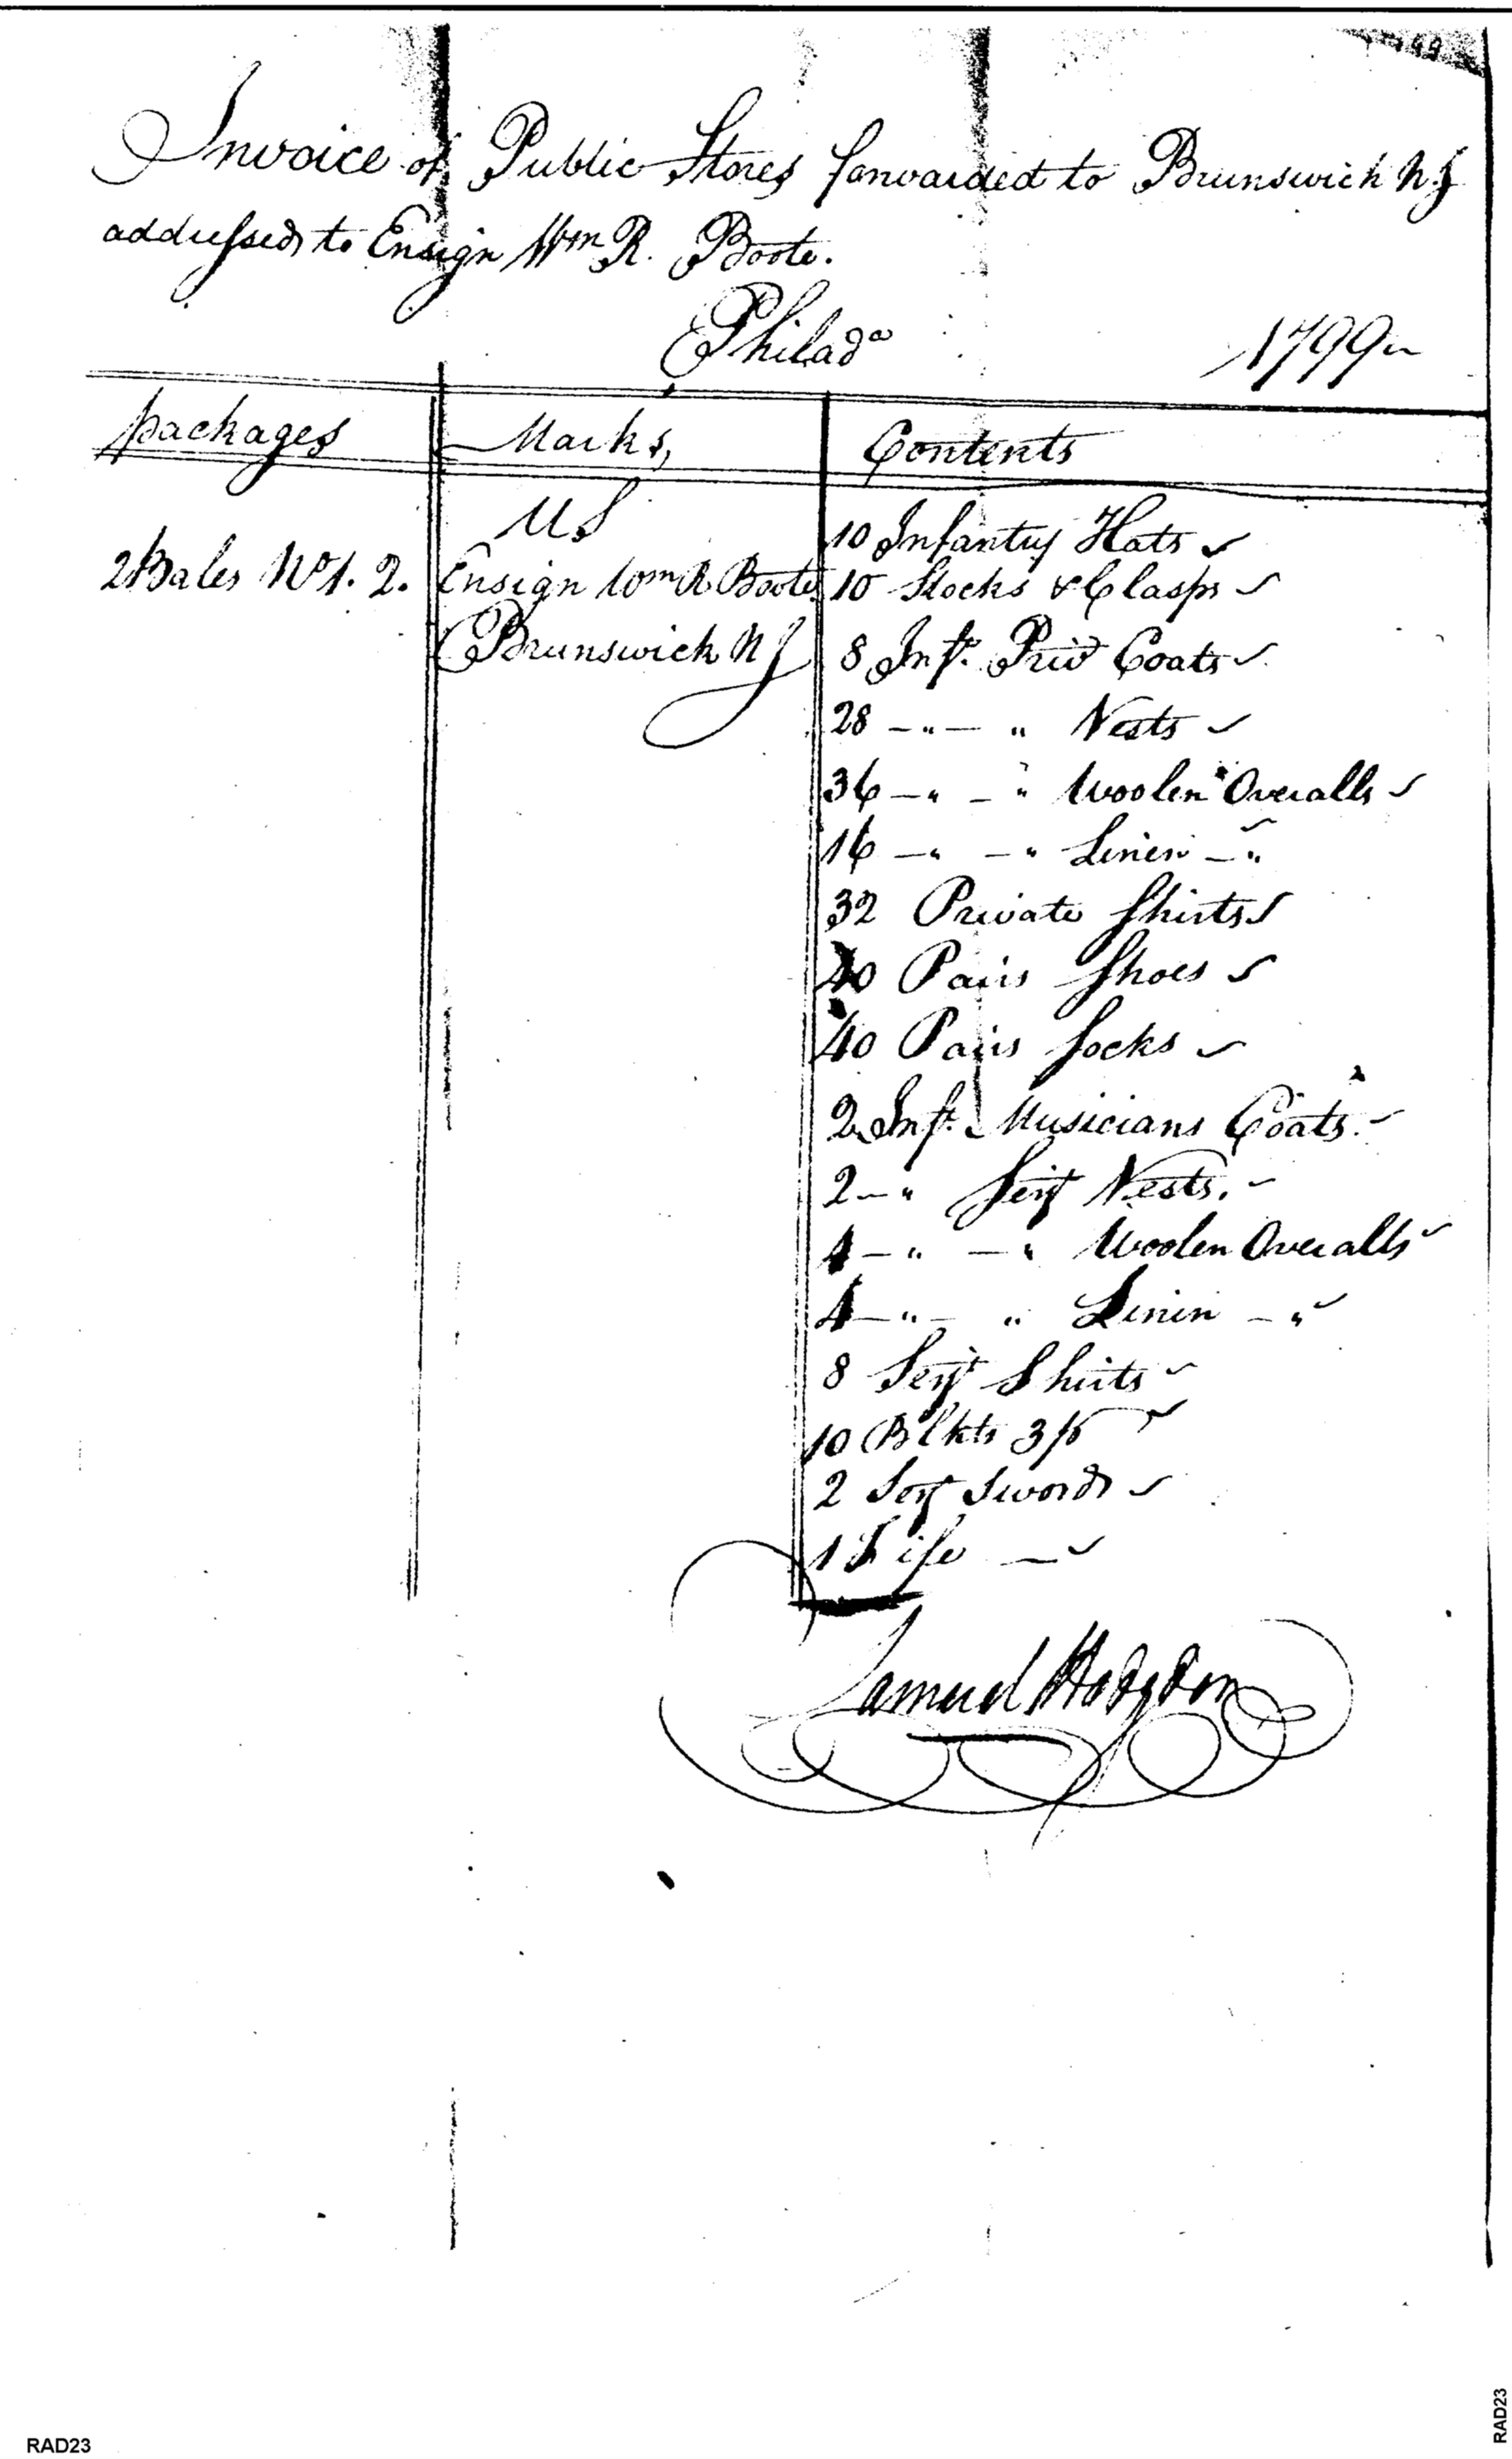 Invoice of Public Stores forwarded to Brunswick N.J
addressed to Ensign Wm R. Boote.
Philada 1799
packages Marks, Contents
US
2 Bales No 1. 2. Ensign Wm R Boote
Brunswick NJ
10 Infantry Hats ✓
10 Stocks & Clasps ✓
8 Inft. Privt Coats ✓
28 — " — " Vests ✓
36 — " — " Woolen Overalls ✓
16 — " — " Linen — " ✓
32 Private Shirts ✓
40 Pairs Shoes ✓
40 Pairs Socks ✓
2 Inft. Musicians Coats. ✓
2 — " Serjt Vests. ✓
4 — " — " Woolen Overalls ✓
4 — " — " Linen — " ✓
8 Serjt Shirts ✓
10 Blkts 3 pt ✓
2 Serjt Swords ✓
1 Fife — ✓
Samuel Hodgdon
RAD23
RAD23